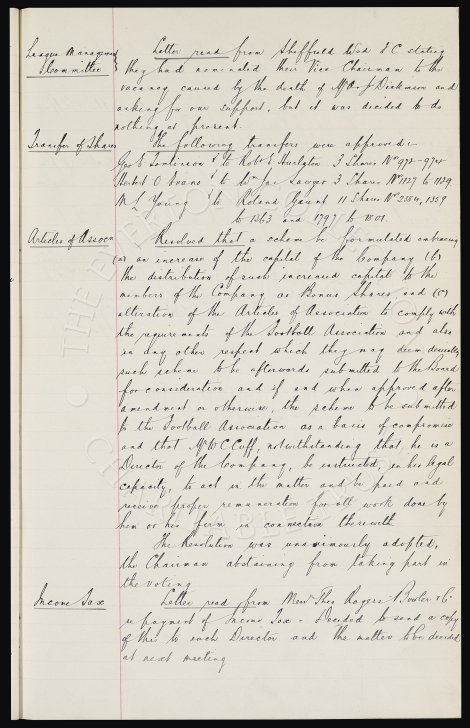 League Management Committee
Letter read from Sheffield Wed F C stating
they had nominated their Vice Chairman to the
vacancy caused by the death of Mr A. J Dickinson and
asking for our support, but it was decided to do
nothing at present.
Transfer of Shares
The following transfers were approved:-
Geo E Tomlinson to Robt E Hurlston 3 Shares Nos 972-974
Herbert O Evans to Wm Jas Sawyer 3 Shares Nos 1127 to 1129
M L Young to Roland Gaunt 11 Shares No 2384, 1359
to 1363 and 1797 to 1801.
Articles of Assocn
Resolved that a scheme be formulated embracing
(a) an increase of the capital of the Company (b)
the distribution of such increased capital to the
members of the Company as Bonus Shares and (c)
alteration of the Articles of Association to comply with
the requirements of the Football Association and also
in any other respect which they may deem desirable,
such scheme to be afterwards submitted to the Board
for consideration and if and when approved after
amendment or otherwise, the scheme to be submitted
to the Football Association as a basis of compromise
and that Mr W C Cuff, notwithstanding that he is a
Director of the Company, be instructed, in his legal
capacity, to act in the matter and be paid and
receive proper remuneration for all work done by
him or his firm in connection therewith
The Resolution was unanimously adopted,
the Chairman abstaining from taking part in
the voting
Income Tax
Letter read from Messrs Theo Rogers Bowler & Co
re payment of Income Tax - Decided to send a copy
of this to each Director and the matter to be decided
at next meeting